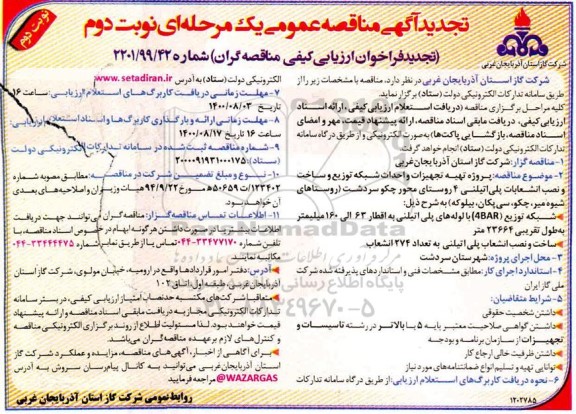 نوبت دوم
تجدید آگهی مناقصه عمومی یک مرحله‌ای نوبت دوم
(تجدید فراخوان ارزیابی کیفی مناقصه گران) شماره ۲۲۰۱/۹۹/۴۲
شرکت گاز استان آذربایجان غربی
شرکت گاز استان آذربایجان غربی در نظر دارد، مناقصه با مشخصات زیر را از
طریق سامانه تدارکات الکترونیکی دولت (ستاد) برگزار نماید.
کلیه مراحل برگزاری مناقصه (دریافت استعلام ارزیابی کیفی، ارائه اسناد
ارزیابی کیفی، دریافت مابقی اسناد مناقصه، ارائه پیشنهاد قیمت، مهر و امضای
اسناد مناقصه، بازگشایی پاکت‌ها) به صورت الکترونیکی و از طریق درگاه سامانه
تدارکات الکترونیکی دولت (ستاد) انجام خواهد گرفت.
۱- مناقصه گزار: شرکت گاز استان آذربایجان غربی
۲- موضوع مناقصه: پروژه تهیه تجهیزات و احداث شبکه توزیع و ساخت
و نصب انشعابات پلی اتیلنی ۴ روستای محور چکو سردشت (روستاهای
شیوه میر، چکو، سی پکان، بیلوکه) به شرح ذیل:
شبکه توزیع (4BAR) با لوله‌های پلی اتیلنی به اقطار ۶۳ الی ۱۶۰ میلیمتر
به طول تقریبی ۲۳۶۶۴ متر
ساخت و نصب انشعاب پلی اتیلنی به تعداد ۲۷۴ انشعاب.
۳- محل اجرای پروژه: شهرستان سردشت
۴- استاندارد اجرای کار: مطابق مشخصات فنی و استانداردهای پذیرفته شده شرکت
ملی گاز ایران
۵- شرایط متقاضیان:
داشتن شخصیت حقوقی
داشتن گواهی صلاحیت معتبر پایه ۵ یا بالاتر در رشته تاسیسات و
تجهیزات از سازمان برنامه و بودجه
داشتن ظرفیت خالی ارجاع کار
توانایی تهیه و تسلیم انواع ضمانتنامه‌های مورد نیاز
۶- نحوه دریافت کاربرگ‌های استعلام ارزیابی: از طریق درگاه سامانه تدارکات
الکترونیکی دولت (ستاد) به آدرس www.setadiran.ir
۷- مهلت زمانی دریافت کاربرگ‌های استعلام ارزیابی: ساعت ۱۶
تاریخ ۱۴۰۰/۰۸/۰۳
۸- مهلت زمانی ارائه و بارگذاری کاربرگ‌ها و اسناد استعلام ارزیابی:
ساعت ۱۶ تاریخ ۱۴۰۰/۰۸/۱۷
۹- شماره مناقصه ثبت شده در سامانه تدارکات الکترونیکی دولت
(ستاد): ۲۰۰۰۰۹۱۹۳۱۰۰۰۱۷۵
۱۰- نوع و مبلغ تضمین شرکت در مناقصه: مطابق مصوبه شماره
۱۲۳۴۰۲/ت۵۰۶۵۹ه مورخ ۹۴/۹/۲۲ هیات وزیران و اصلاحیه‌های بعدی
آن خواهد بود.
۱۱- اطلاعات تماس مناقصه گزار: مناقصه گران می‌توانند جهت دریافت
اطلاعات بیشتر و یا در صورت داشتن هر گونه ابهام در خصوص اسناد مناقصه، با
تلفن شماره ۳۳۴۷۷۱۷۰-۰۴۴ تماس یا از طریق نمابر شماره ۳۳۴۴۴۴۷۵-۰۴۴
مکاتبه نمایند.
آدرس: دفتر امور قراردادها واقع در ارومیه، خیابان مولوی، شرکت گاز استان
آذربایجان غربی، طبقه اول، اتاق ۱۰۲
متعاقبا شرکت‌های مکتسبه حد نصاب امتیاز ارزیابی کیفی، در بستر سامانه
تدارکات الکترونیکی مجاز به دریافت مابقی اسناد مناقصه و ارائه پیشنهاد
قیمت خواهند بود. لذا مسئولیت قبلاع از روند برگزاری الکترونیکی مناقصه
و کنترل‌های لازم بر عهده مناقصه گران می‌باشد.
برای آگاهی از اخبار، آگهی‌های مناقصه، مزایده و عملکرد شرکت گاز
استان آذربایجان غربی می‌توانید به کانال پیام رسان سروش به آدرس
@WAZARGAS مراجعه فرمایید
۱۲۰۲۷۸۵
روابط عمومی شرکت گاز استان آذربایجان غربی